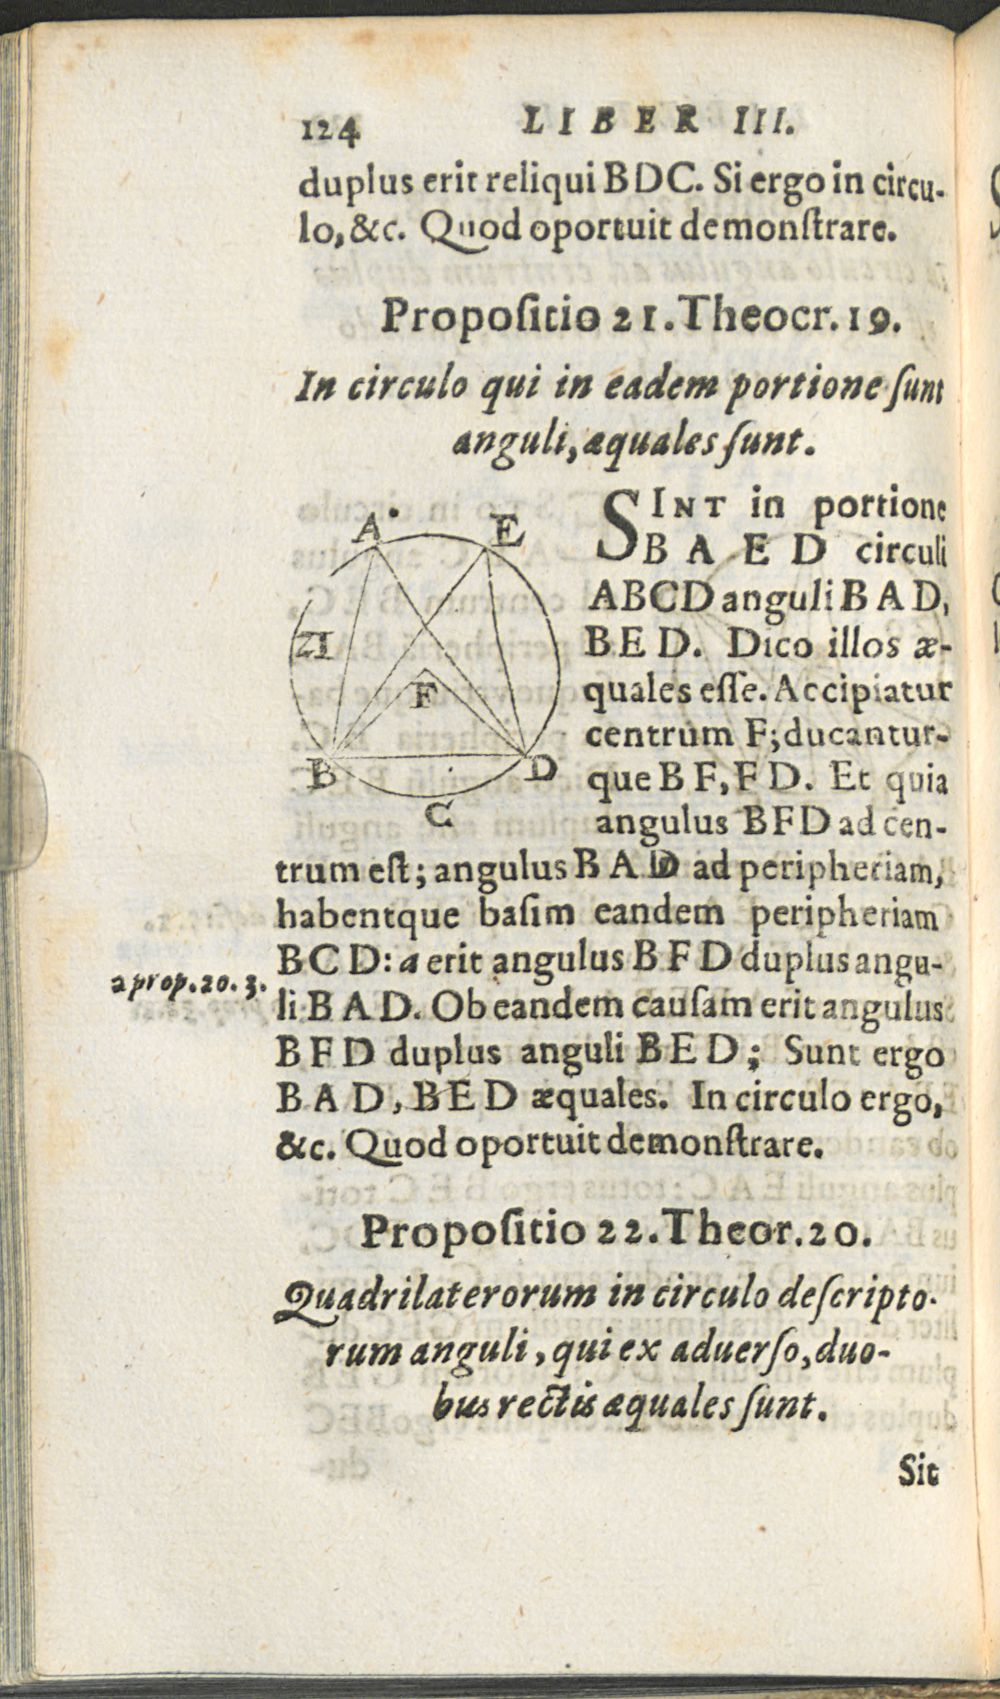 124 LIBER III.
duplus erit reliqui BDC. Si ergo in circu-
lo, &c. Quod oportuit demonſtrare.
Propoſitio 21. Theocr. 19.
In circulo qui in eadem portione ſunt
anguli, æquales ſunt.
SINT in portione
B A E D circuli
ABCD anguli B A D,
B E D. Dico illos æ-
quales eſſe. Accipiatur
centrum F; ducantur-
que B F, F D. Et quia
angulus BFD ad cen-
A
E
21
F
B
D
C
trum eſt; angulus B A D ad peripheriam,
habentque baſim eandem peripheriam
B C D: a erit angulus B F D duplus angu-
a prop. 20. 3.
li B A D. Ob eandem cauſam erit angulus
B F D duplus anguli B E D; Sunt ergo
B A D, B E D æquales. In circulo ergo,
&c. Quod oportuit demonſtrare.
Propoſitio 22. Theor. 20.
Quadrilaterorum in circulo deſcripto-
rum anguli, qui ex aduerſo, duo-
bus rectis æquales ſunt.
Sit